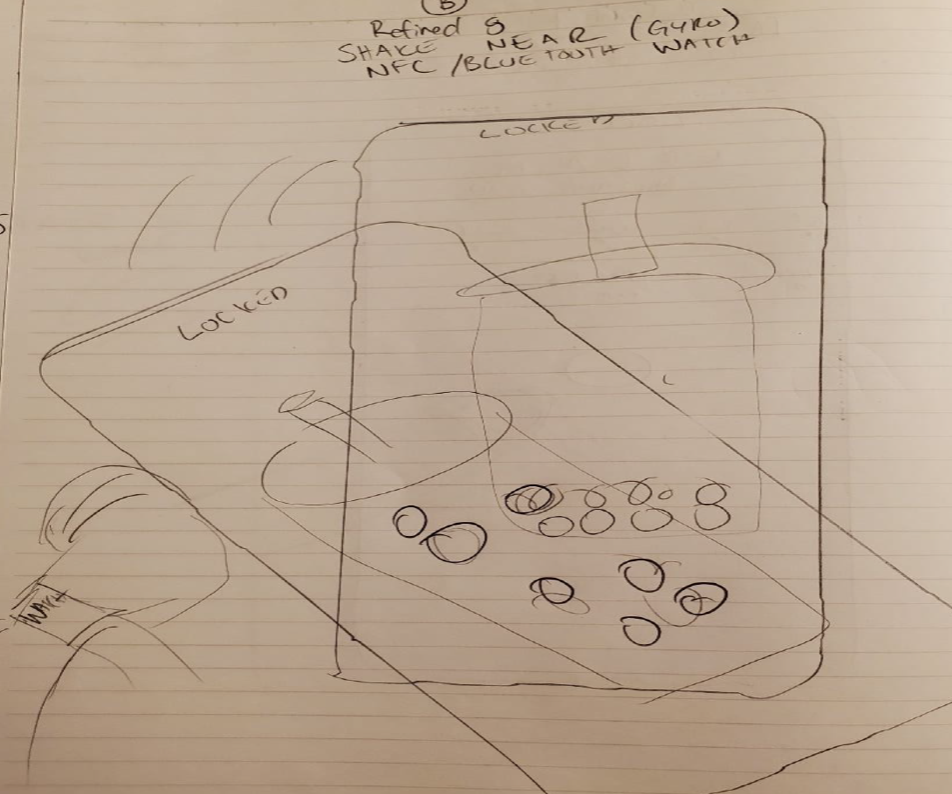 B
Refined 8
SHAKE NEAR (GYRO)
NFC /BLUETOOTH WATCH
LOCKED
LOCKED
WATCH